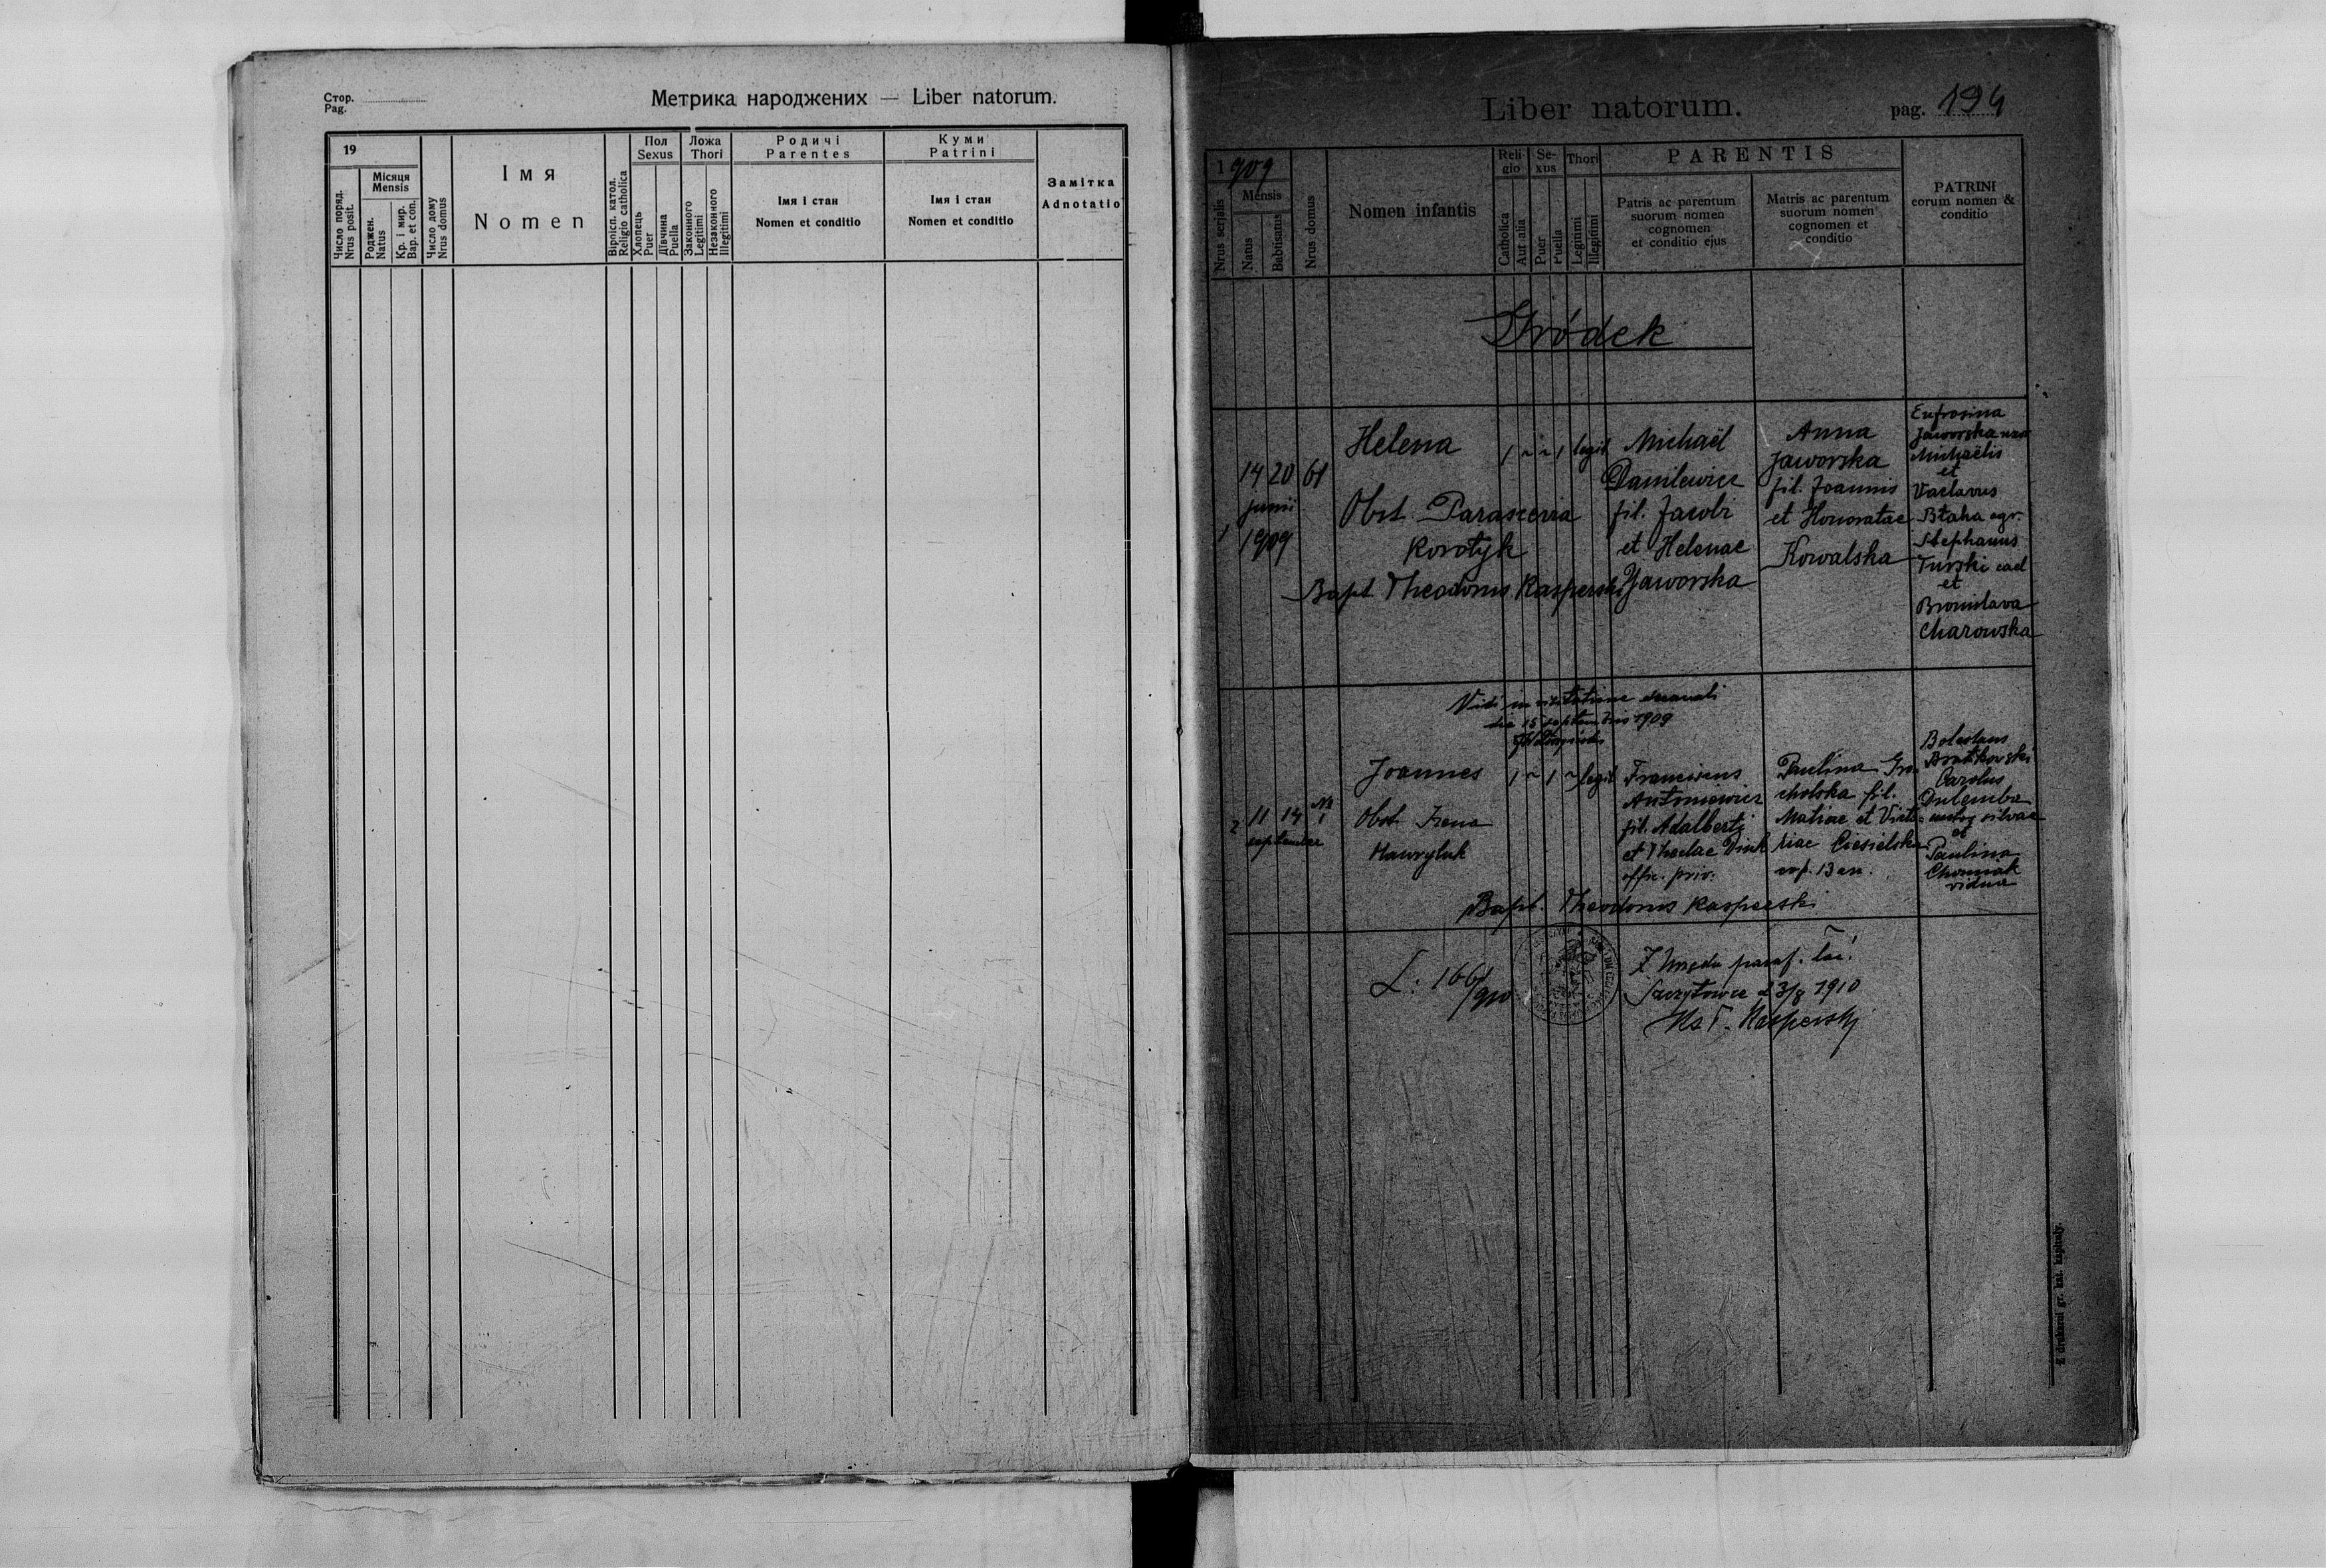 Стор.
Pag.
Метрика народжених — Liber natorum.
19
Місяця
Mensis
Число поряд.
Nrus posit.
Роджен.
Natus
Кр. і мир.
Bap. et con.
Число дому
Nrus domus
Імя
Nomen
Віроісп. катол.
Religio catholica
Пол
Sexus
Хлопець
Puer
Дівчина
Puella
Ложа
Thori
Законного
Legitimi
Незаконного
Illegitimi
Родичі
Parentes
Імя і стан
Nomen et conditio
Куми
Patrini
Імя і стан
Nomen et conditio
Замітка
Adnotatio
Liber natorum.
pag. 194
1909
Nrus serjalis
Mensis
Natus
Babtisatus
Nrus domus
Nomen infantis
Reli-
gio
Catholica
Aut alia
Se-
xus
Puer
Puella
Thori
Legitimi
Illegitimi
PARENTIS
Patris ac parentum
suorum nomen
cognomen
et conditio ejus
Matris ac parentum
suorum nomen
cognomen et
conditio
PATRINI
eorum nomen &
conditio
Gródek
1
14 20 61
junii
1909
Helena
Obst. Parascevia
Korotyk
Bapt. Theodorus Kasperski
1 ~ ~ 1 legit
Michaël
Danilewicz
fil. Jacobi
et Helenae
Jaworska
Anna
Jaworska
fil. Joannis
et Honoratae
Kowalska
Eufrosina
Jaworska uxor
Michaëlis
et
Vaclavus
Błaha agr.
Stephanus
Turski cael
et
Bronislava
Charowska
Vidi in visitatione decanali
die 15 septembris 1909
2
11 14 Nr 1
septembre
Joannes
Obst. Irena
Hawryluk
1 ~ 1 ~ legit
Franciscus
Antoniewicz
fil. Adalberti
et Theclae
offic. priv.
Paulina Gro-
cholska fil.
et Victo-
riae Ciesielska
Boleslaus
Carolus
Dulemba
silvae
et
Paulina
Chomiak
vidua
Bapt. Theodorus Kasperski
L: 166/910
Z Urzędu paraf. łac.
Szczytowce 23/8 1910
Ks T. Kasperski
Z drukarni gr. kat. kapituły.